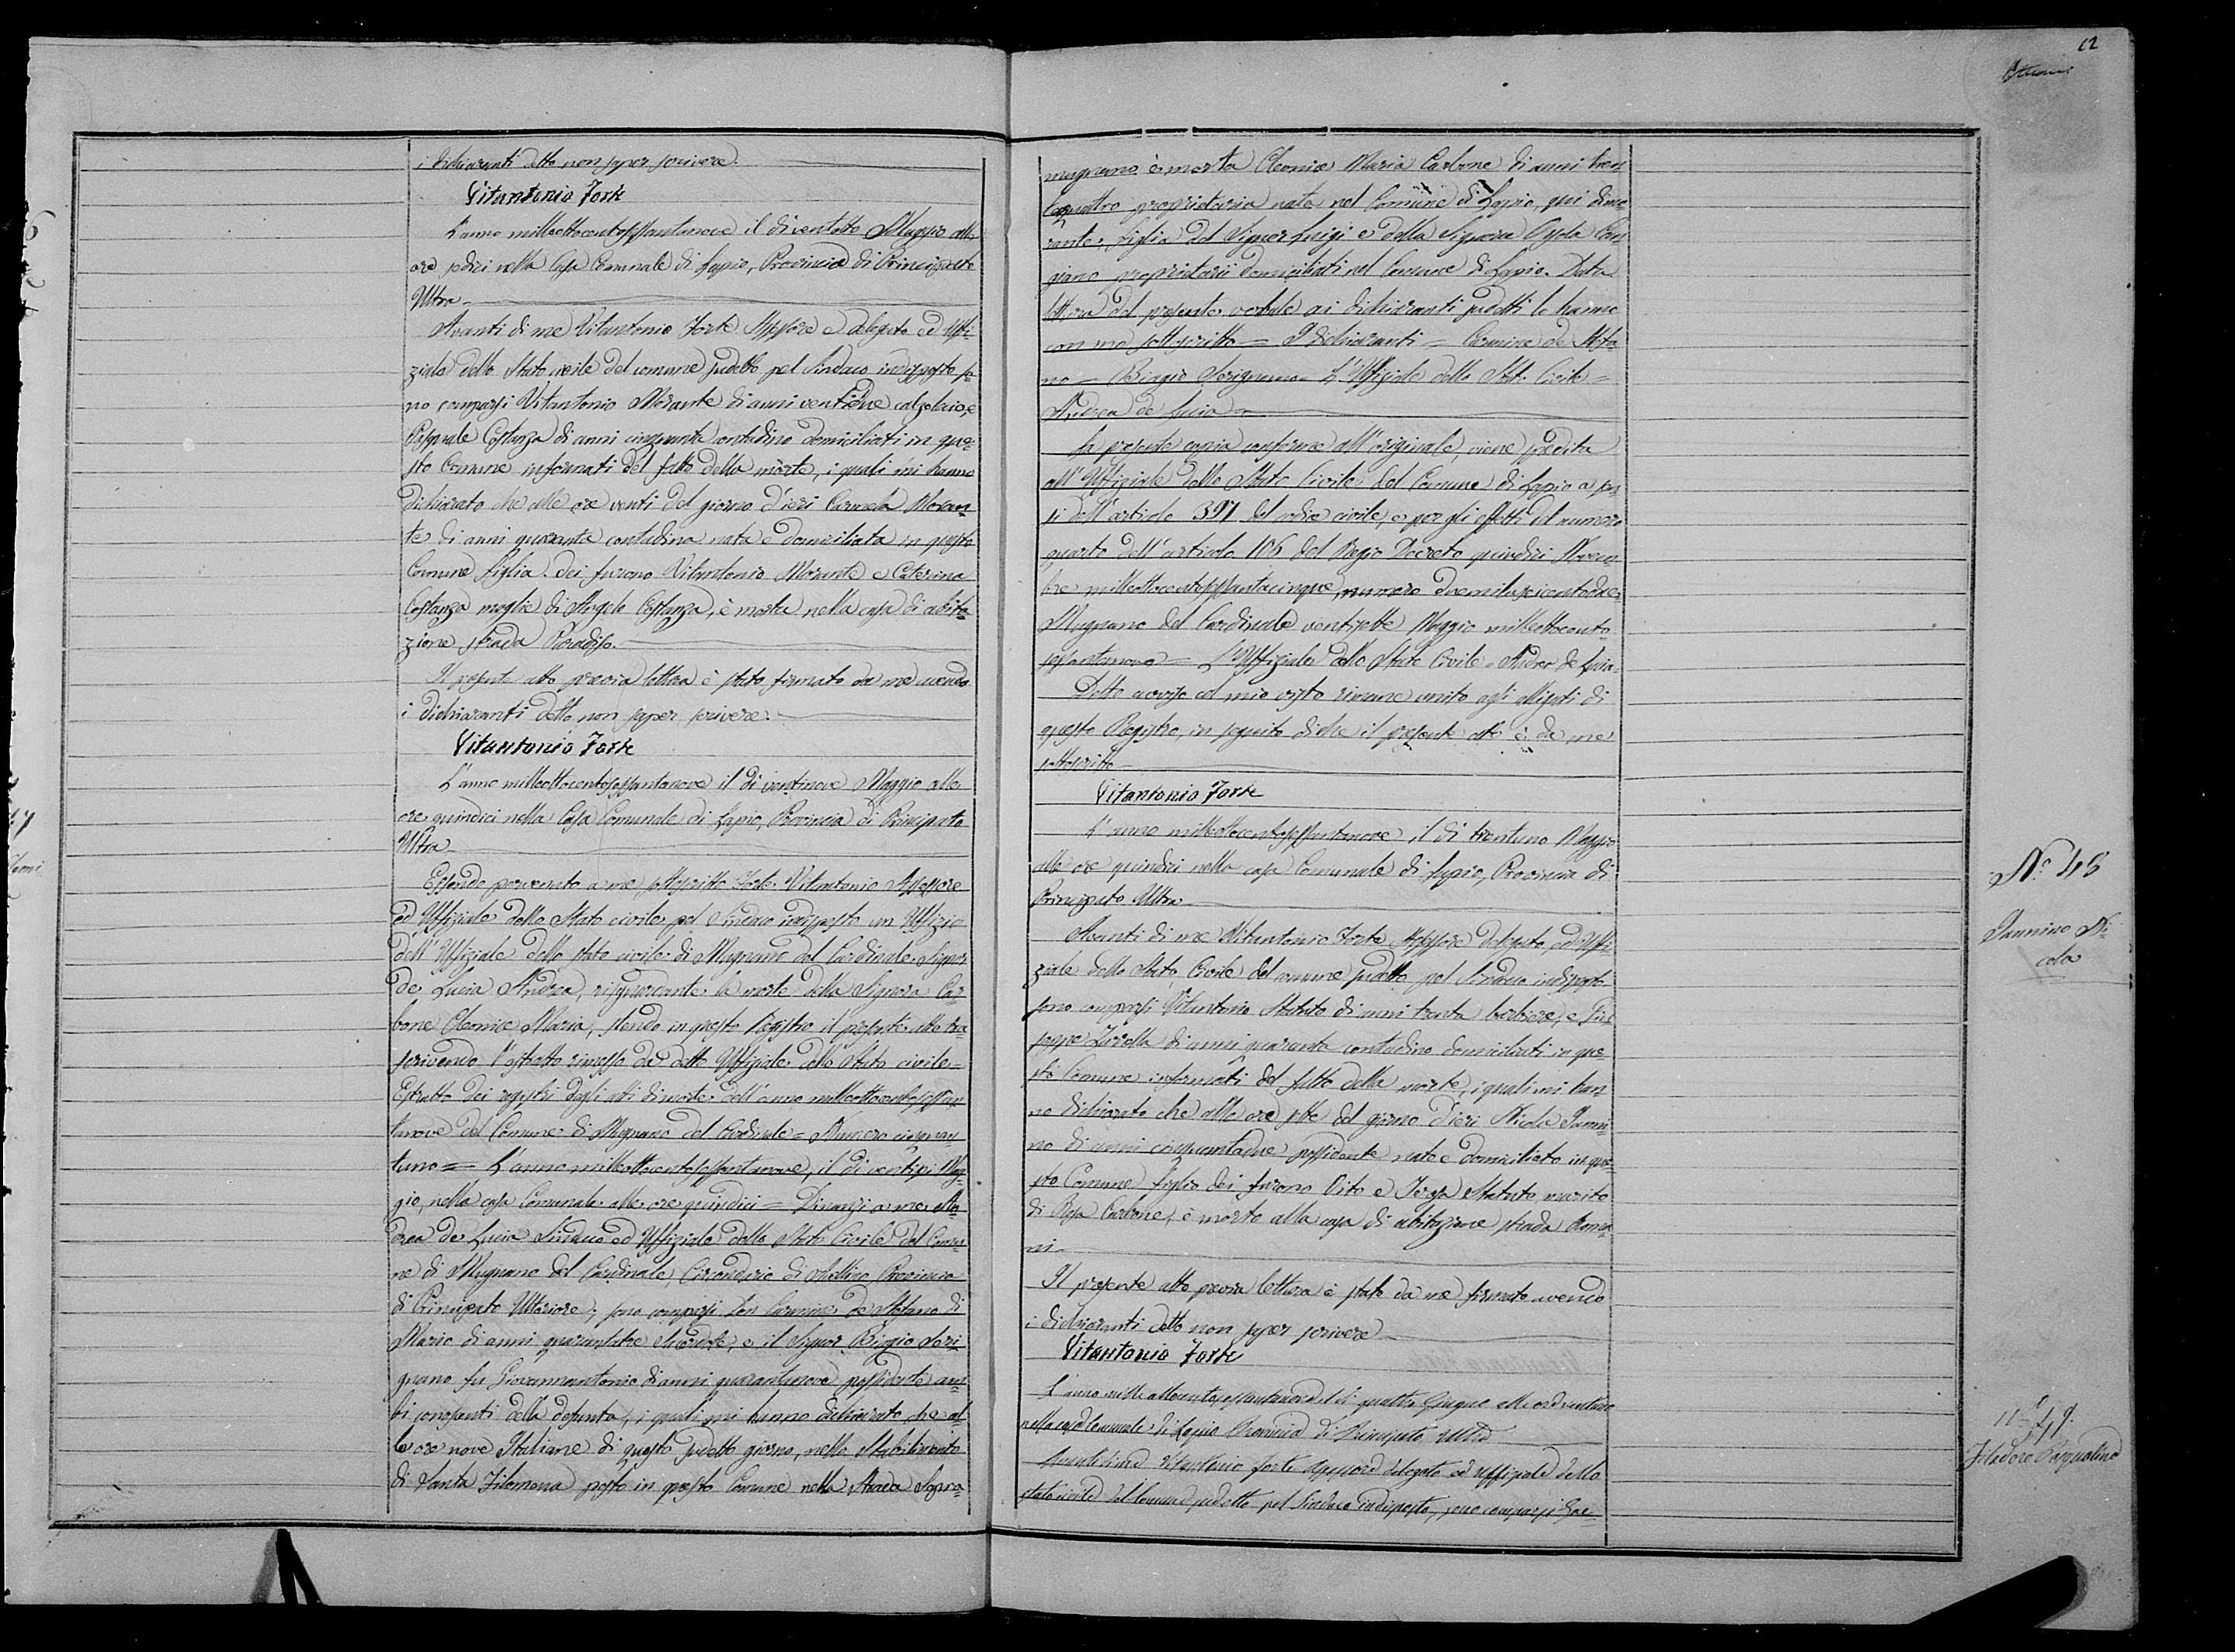 i dichiaranti detto non saper scrivere.
Vitantonio Forte
L'anno milleottocentosessantanove il dì ventotto Maggio alle
ore sedici nella Casa Comunale di Lapio, Provincia di Principato
Ultra
Avanti di me Vitantonio Forte Assessore delegato ed Uffi-
ziale dello Stato civile del comune sudetto pel Sindaco indisposto so-
no comparsi Vitantonio Morante di anni ventidue calzolaio, e
Pasquale Costanza di anni cinquanta contadino domiciliati in que-
sto Comune informati del fatto della morte, i quali mi hanno
dichiarato che alle ore venti del giorno d'ieri Carmela Moran-
te di anni quaranta contadina nata e domiciliata in questo
Comune figlia dei furono Vitantonio Morante e Caterina
Costanza moglie di Angelo Costanza, è morta nella casa di abita-
zione strada Paradiso.
Il presente atto previa lettura è stato firmato da me avendo
i dichiaranti detto non saper scrivere.
Vitantonio Forte
L'anno milleottocentosessantanove il dì ventinove Maggio alle
ore quindici nella Casa Comunale di Lapio, Provincia di Principato
Ultra
Essendo pervenuto a me sottoscritto Forte Vitantonio Assessore
ed Uffiziale dello Stato civile pel Sindaco indisposto un Uffizio
dell'Uffiziale dello stato civile di Mugnano del Cardinale Signor
de Lucia Andrea, risguardante la morte della Signora Car-
bone Cleonice Maria, stendo in questo Registro il presente atto tra-
scrivendo l'estratto rimesso da detto Uffiziale dello Stato civile =
Estratto dei registri degli atti di morte dell'anno milleottocentosessan-
tanove del Comune di Mugnano del Cardinale = Numero cinquan-
tuno = L'anno milleottocentosessantanove, il dì ventisei Mag-
gio, nella casa Comunale alle ore quindici = Dinanzi a me An-
drea de Lucia Sindaco ed Uffiziale dello Stato Civile del Comu-
ne di Mugnano del Cardinale, Circondario di Avellino Provincia
di Principato Ulteriore, sono comparsi Don Carmine de Stefano di
Mario di anni quarantatre Sacerdote, e il Signor Biagio Seri-
gnano fu Giovannantonio di anni quarantanove possidente am-
bi conoscenti della defunta, i quali mi hanno dichiarato che al-
le ore nove Italiane di questo sudetto giorno, nello Stabilimento
di Santa Filomena posto in questo Comune nella Strada Sopra-
12
mugnano è morta Cleonice Maria Carbone di anni tren-
taquattro proprietaria nata nel Comune di Lapio, qui dimo-
rante, figlia del Signor Luigi e della Signora
proprietarii domiciliati nel Comune di Lapio. Data
lettura del presente verbale ai dichiaranti sudetti lo hanno
con me sottoscritto = I dichiaranti = Carmine de Stefa-
no = Biagio Serignano = L'Uffiziale dello Stato Civile =
Andrea de Lucia =
La presente copia conforme all'originale, viene spedita
all'Uffiziale dello Stato Civile del Comune di Lapio a sen-
si dell'articolo 397 del codice civile, e per gli effetti del numero
quarto dell'articolo 106 del Regio Decreto quindici Novem-
bre milleottocentosessantacinque, numero duemilaseicentodue.
Mugnano del Cardinale ventisette Maggio milleottocento-
sessantanove = L'Uffiziale dello Stato Civile = Andrea de Lucia.
Detto avviso col mio visto rimane unito agli allegati di
questo Registro, in seguito di che il presente atto è da me
sottoscritto
Vitantonio Forte
L'anno milleottocentosessantanove, il dì trentuno Maggio
alle ore quindici nella casa Comunale di Lapio, Provincia di
Principato Ultra
Avanti di me Vitantonio Forte Assessore delegato, ed Uffi-
ziale dello Stato Civile del comune sudetto pel Sindaco indisposto
sono comparsi Vitantonio Statuto di anni trenta barbiere, e Giu-
seppe Zarrella di anni quaranta contadino domiciliati in que-
sto Comune informati del fatto della morte, i quali mi han-
no dichiarato che alle ore sette del giorno d'ieri Nicola Janni-
no di anni cinquantadue possidente nato e domiciliato in que-
sto Comune figlio dei furono Vito e Teresa Statuto, marito
di Rosa Carbone, è morto alla casa di abitazione strada Roma-
ni
Il presente atto previa lettura è stato da me firmato avendo
i dichiaranti detto non saper scrivere
Vitantonio Forte
L'anno milleottocentosessantanove il dì quattro Giugno alle ore ventuno
nella casa Comunale di Lapio Provincia di Principato Ultra
Avanti di me Vitantonio Forte Assessore delegato ed Uffiziale dello
stato civile del Comune sudetto pel Sindaco indisposto, sono comparsi Gae-
N.º 48
Jannino Ni-
cola
49
Filadoro Pasqualina